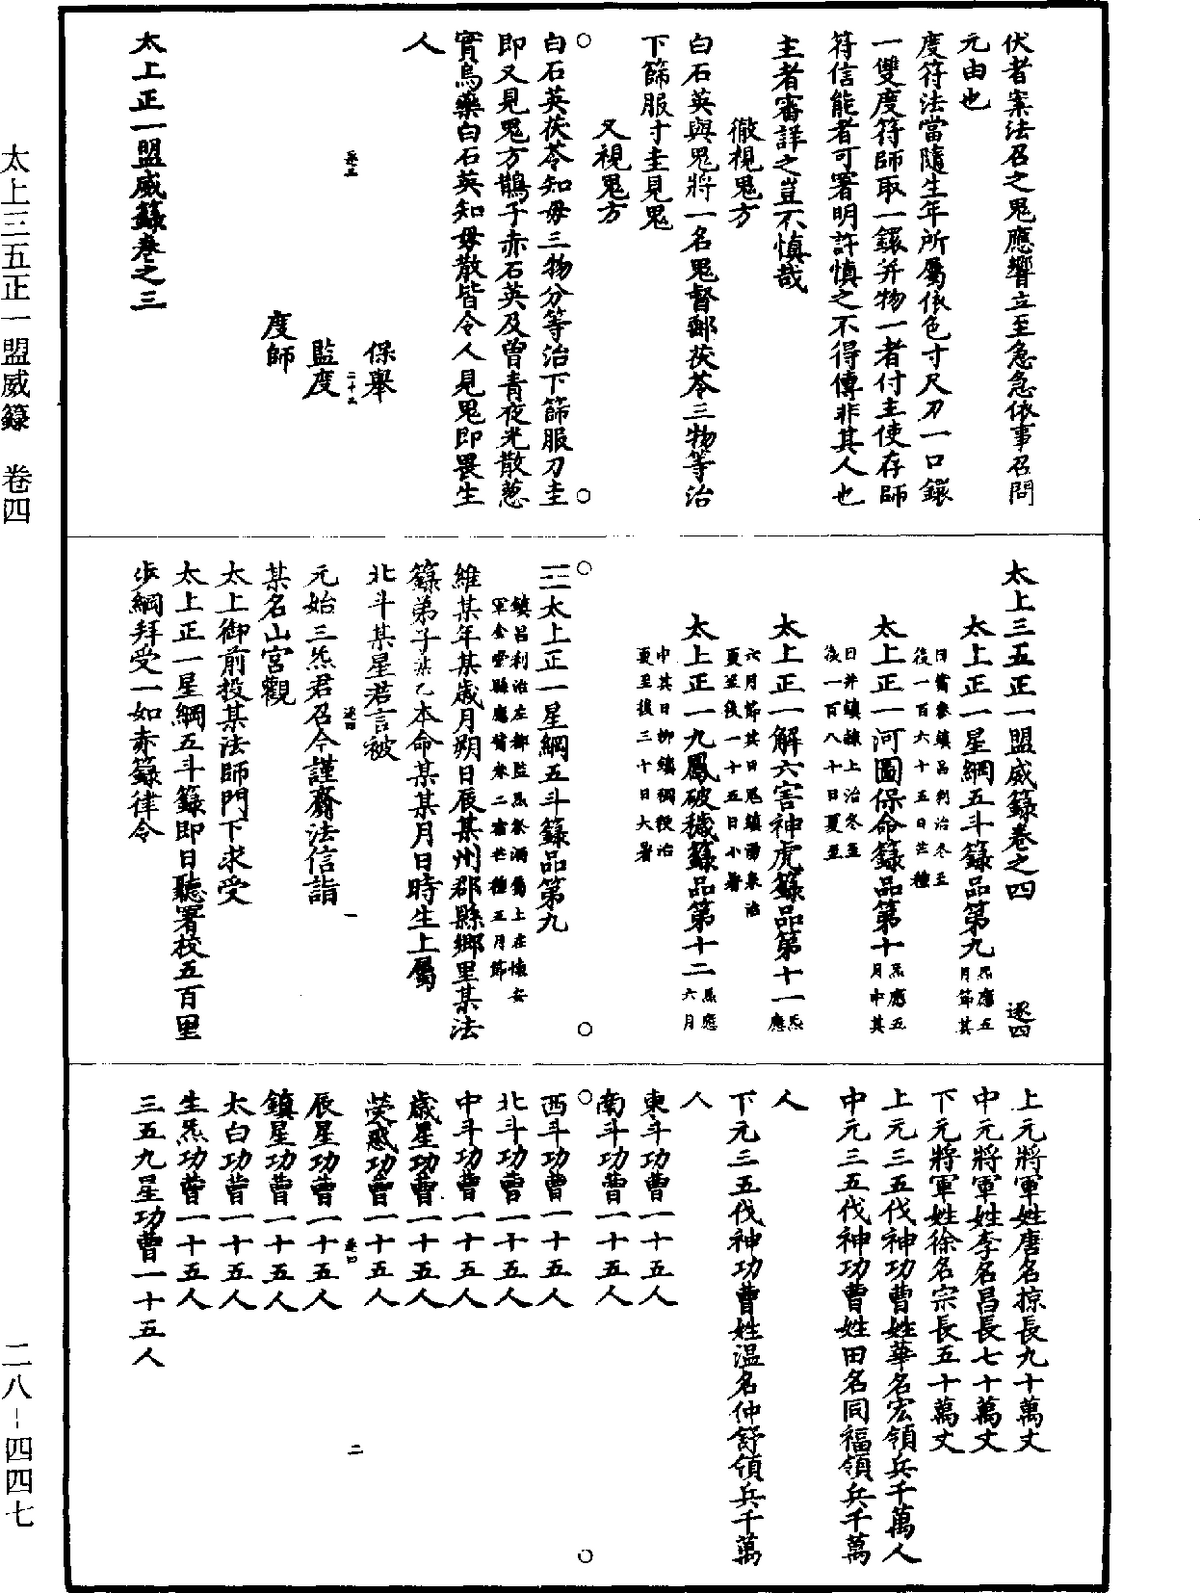 伏者案法召之鬼應響立至急急依事召問
元由也
度符法當隨生年所屬依色寸尺刀一口鐶
一雙度符師取一鐶并物一者付主使存師
符信能者可署明許慎之不得傳非其人也
主者審詳之豈不慎哉
徹視鬼方
白石英與鬼將一名鬼督郵茯苓三物等治
下篩服寸圭見鬼
又視鬼方
白石英茯苓知母三物分等治下篩服刀圭
即又見鬼方鵲子赤石英及曾青夜光散蔥
實烏藥白石英知母散皆令人見鬼即畏生
人
保舉
監度
度師
二十三
太上正一盟威籙卷之三
太上三五正一盟威籙卷之四
逐四
太上正一星綱五斗籙品第九炁應五月節其
日觜參鎮昌利治冬至
後一百六十五日芒種
太上正一河圖保命籙品第十炁應五月中其
日井鎮隸上治冬至
後一百八十日夏至
太上正一解六害神虎籙品第十一炁應
六月節其日鬼鎮湧泉治
夏至後一十五日小暑
太上正一九鳳破穢籙品第十二炁應六月
中其日柳鎮稠稉治
夏至後三十日大暑
太上正一星綱五斗籙品第九
鎮昌利治左都監炁祭酒屬上在懷安
軍金堂縣應觜參二宿芒種五月節
維某年某歲月朔日辰某州郡縣鄉里某法
籙弟子某乙本命某某月日時生上屬
北斗某星君言被
元始三炁君召今謹齎法信詣
逐四
一
某名山宮觀
太上御前投某法師門下求受
太上正一星綱五斗籙即日聽署校五百里
步綱拜受一如赤籙律令
上元將軍姓唐名掠長九十萬丈
中元將軍姓李名昌長七十萬丈
下元將軍姓徐名宗長五十萬丈
上元三五伐神功曹姓華名宏領兵千萬人
中元三五伐神功曹姓田名同福領兵千萬
人
下元三五伐神功曹姓温名仲舒領兵千萬
人
東斗功曹一十五人
南斗功曹一十五人
西斗功曹一十五人
北斗功曹一十五人
中斗功曹一十五人
歲星功曹一十五人
熒惑功曹一十五人
二
辰星功曹一十五人
鎮星功曹一十五人
太白功曹一十五人
生炁功曹一十五人
三五九星功曹一十五人
太上三五正一盟威籙　卷四
二八－四四七